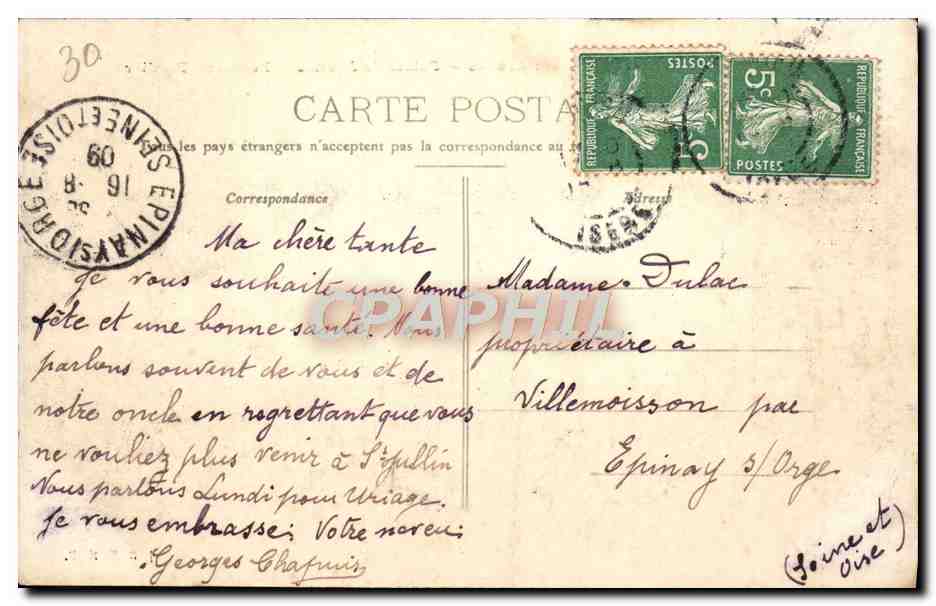 30
CARTE POSTA
Tous les pays étrangers n'acceptent pas la correspondance au
Correspondance
Adresse
REPUBLIQUE FRANÇAISE
POSTES
5c
5c
REPUBLIQUE FRANÇAISE
POSTES
EPINAY S/ ORGE
SEINE ET OISE
16 -8
09
ISERE
Ma chère tante
Je vous souhaite une bonne
fête et une bonne santé. Nous
parlons souvent de vous et de
notre oncle en regrettant que vous
ne vouliez plus venir à St Jullin
Nous partons Lundi pour Uriage.
Je vous embrasse. Votre neveu
Georges Chapuis
Madame Dulac
propriétaire à
Villemoisson par
Epinay s/Orge
(Seine et
Oise)
CPAPHIL